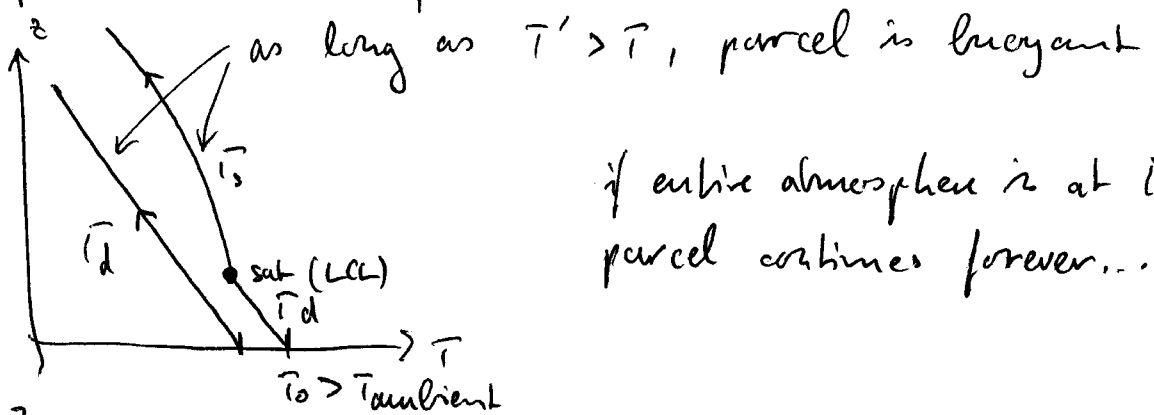 z
as long as T' > T, parcel is buoyant
Γs
if entire atmosphere is at
Γd
parcel continues forever...
sat (LCL)
Γd
T
T₀ > Tambient